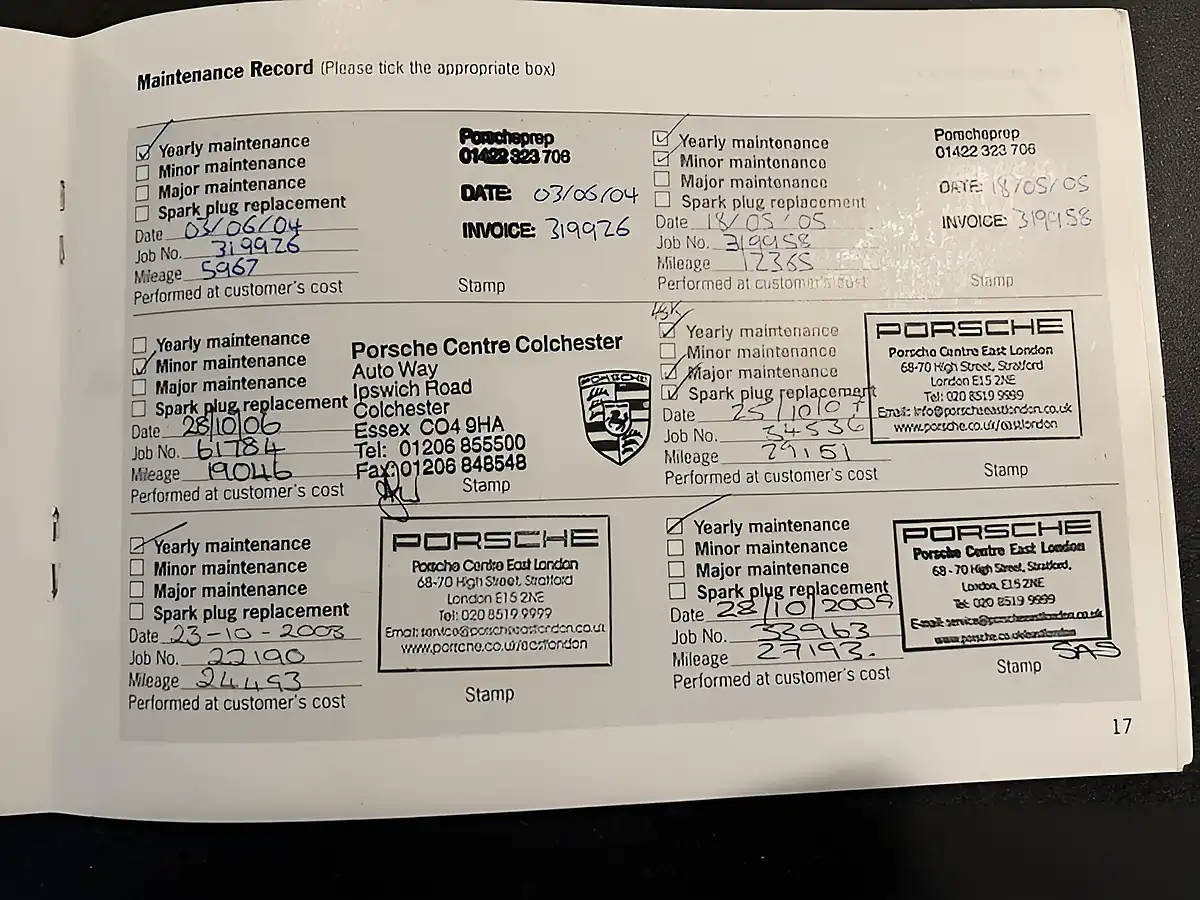 Maintenance Record (Please tick the appropriate box)
Yearly maintenance
Minor maintenance
Major maintenance
Spark plug replacement
Date 03/06/04
Job No. 319926
Mileage 5967
Performed at customer's cost
Porscheprep
01422 323 706
DATE: 03/06/04
INVOICE: 319926
Stamp
Yearly maintenance
Minor maintenance
Major maintenance
Spark plug replacement
Date 18/05/05
Job No. 319958
Mileage 12365
Performed at customer's cost
Porscheprep
01422 323 706
DATE: 18/05/05
INVOICE: 319958
Stamp
Yearly maintenance
Minor maintenance
Major maintenance
Spark plug replacement
Date 28/10/06
Job No. 61784
Mileage 19046
Performed at customer's cost
Porsche Centre Colchester
Auto Way
Ipswich Road
Colchester
Essex CO4 9HA
Tel: 01206 855500
Fax: 01206 848548
Stamp
PORSCHE
48K
Yearly maintenance
Minor maintenance
Major maintenance
Spark plug replacement
Date 25/10/07
Job No. 34536
Mileage
Performed at customer's cost
PORSCHE
Porsche Centre East London
68-70 High Street, Stratford
London E15 2NE
Tel: 020 8519 9999
Email: info@porscheeastlondon.co.uk
www.porsche.co.uk/eastlondon
Stamp
Yearly maintenance
Minor maintenance
Major maintenance
Spark plug replacement
Date 23-10-2008
Job No. 22190
Mileage 24493
Performed at customer's cost
PORSCHE
Porsche Centre East London
68-70 High Street, Stratford
London E15 2NE
Tel: 020 8519 9999
Email: service@porscheeastlondon.co.uk
www.porsche.co.uk/eastlondon
Stamp
Yearly maintenance
Minor maintenance
Major maintenance
Spark plug replacement
Date 28/10/2009
Job No. 33963
Mileage 27193.
Performed at customer's cost
PORSCHE
Porsche Centre East London
68 - 70 High Street, Stratford,
London, E15 2NE
Tel: 020 8519 9999
E-mail: service@porscheeastlondon.co.uk
www.porsche.co.uk/eastlondon
SAS
Stamp
17